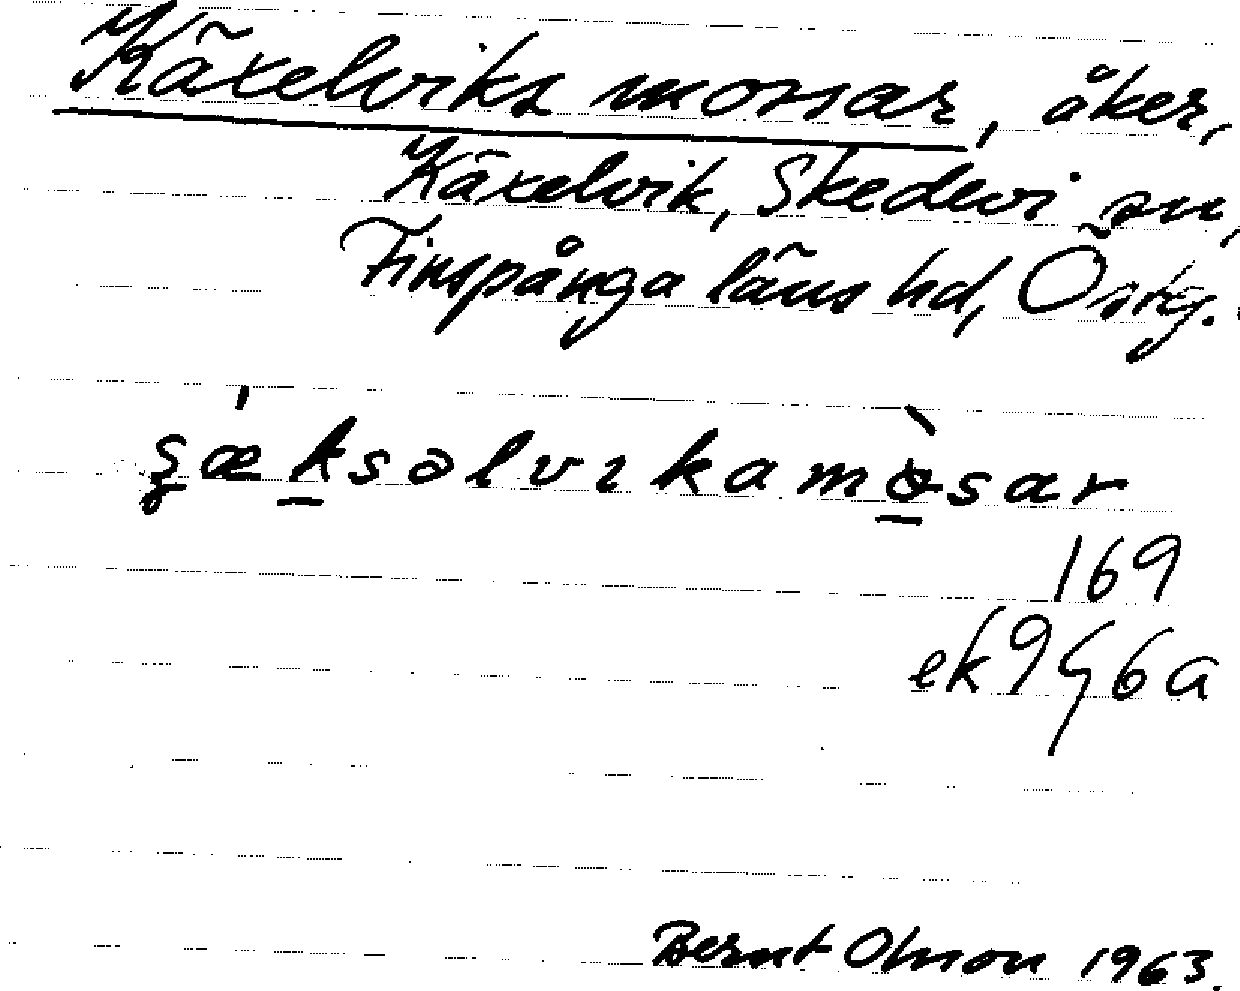 Käxelviks mossar, åker,
Käxelvik, Skedevi sn,
Finspånga läns hd, Östg.
ʂæksəlvɩkamòsar
169
ek 9 G 6 a
Bernt Olsson 1963.